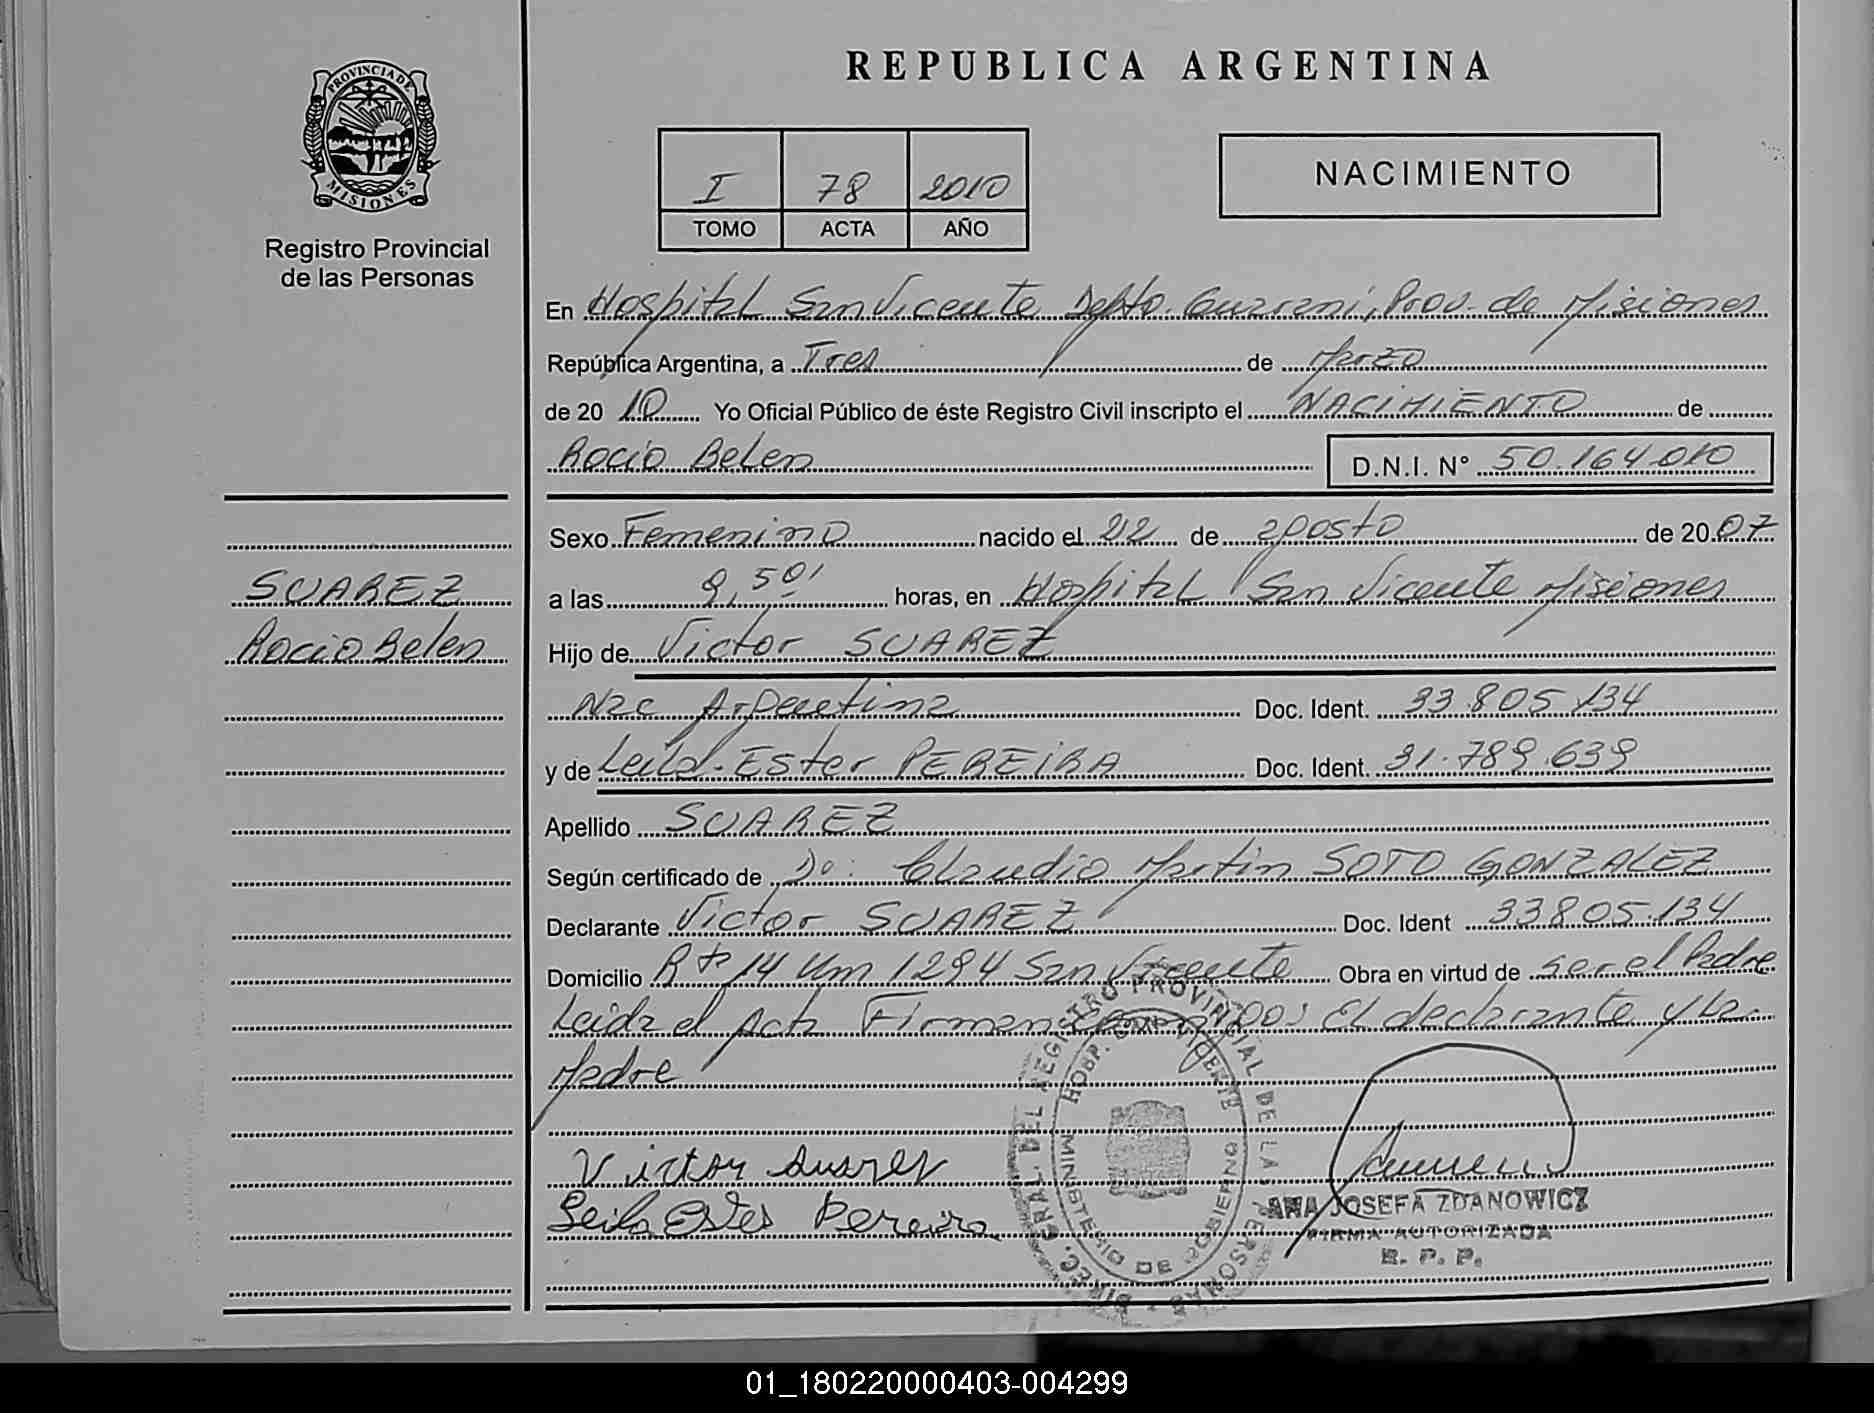 REPUBLICA ARGENTINA
PROVINCIA DE
MISIONES
Registro Provincial
de las Personas
I 78 2010
TOMO ACTA AÑO
NACIMIENTO
En Hospital San Vicente Depto. Guarani, Prov. de Misiones
República Argentina, a Tres de Marzo
de 20 10 Yo Oficial Público de éste Registro Civil inscripto el NACIMIENTO de
Rocio Belen D.N.I. N° 50.164.010
Sexo Femenino nacido el 22 de agosto de 20 07
SUAREZ
Rocio Belen
a las horas, en Hospital San Vicente Misiones
Hijo de Victor SUAREZ
Nac Argentina Doc. Ident. 33.805.134
y de Ester PEREIRA Doc. Ident. 31.789.639
Apellido SUAREZ
Según certificado de Dr: Claudio Martin SOTO GONZALEZ
Declarante Victor SUAREZ Doc. Ident 33805.134
Domicilio Rta 14 Km 1294 San Vicente Obra en virtud de ser el Padre
Leida el Acta Firman El declarante y La
Madre
Victor Suarez
Leila Ester Pereira
DIREC. GRAL. DEL REGISTRO PROVINCIAL DE LAS PERSONAS
HOSP. SAN VICENTE
MINISTERIO DE GOBIERNO
ANA JOSEFA ZDANOWICZ
FIRMA AUTORIZADA
R. P. P.
01_180220000403-004299